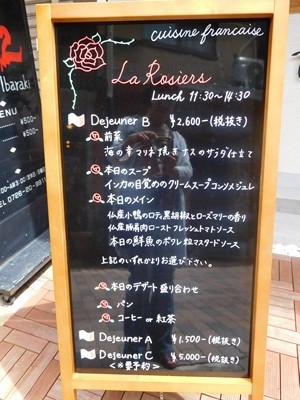 cuisine francaise
La Rosiers
Lunch 11:30~14:30
Dejeuner B ¥2,600-(税抜き)
前菜
海の幸マリネ焼きナスのサラダ仕立て
本日のスープ
インカの目覚めのクリームスープコンソメジュレ
本日のメイン
仏産小鴨のロティ黒胡椒とローズマリーの香り
仏産豚肩肉ロースト フレッシュトマトソース
本日の鮮魚のポワレ 粒マスタードソース
上記のいずれかよりお選び下さい。
本日のデザート盛り合わせ
パン
コーヒー or 紅茶
Dejeuner A ¥1,500-(税抜き)
Dejeuner C ¥5,000-(税抜き)
<※要予約>
Ibaraki
MENU
¥500-
¥500-